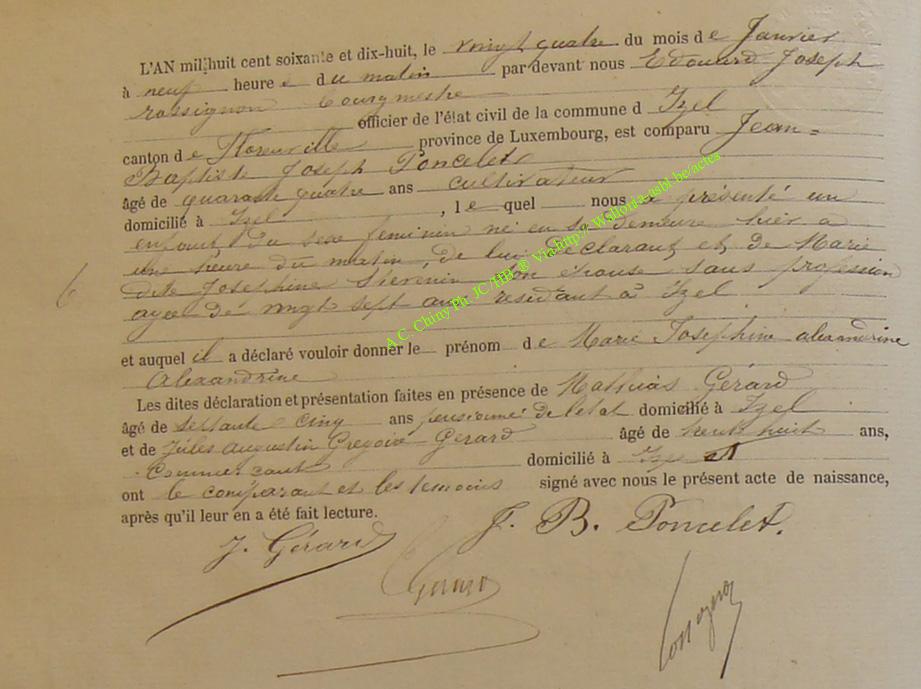 L'AN mil huit cent soixante et dix-huit, le vingt quatre du mois de Janvier
à neuf heure s du matin par devant nous Edouard Joseph
rossignon bourgmestre
officier de l'état civil de la commune d Izel
canton de Florenville province de Luxembourg, est comparu Jean-
Baptiste Joseph Poncelet
âgé de quarante quatre ans cultivateur
domicilié à Izel, le quel nous a présenté un
enfant du sexe feminin né en sa demeure hier a
une heure du matin, de lui Déclarant et de Marie
dite Josephine thevenin son épouse sans profession
agée de vingt sept ans residant à Izel
6
et auquel il a déclaré vouloir donner le prénom de Marie Josephine alexandrine
Alexandrine
Les dites déclaration et présentation faites en présence de Mathias Gérard
âgé de septante cinq ans pensionné de l'etat domicilié à Izel
et de Jules Augustin Gregoire Gerard âgé de trente huit ans,
Commercant domicilié à Izel et
ont le comparant et les temoins signé avec nous le présent acte de naissance,
après qu'il leur en a été fait lecture.
J. B. Poncelet.
J. Gérard
A C Chiny Ph JC/HB ® Via http:// Wslloria-asbl.be/actes